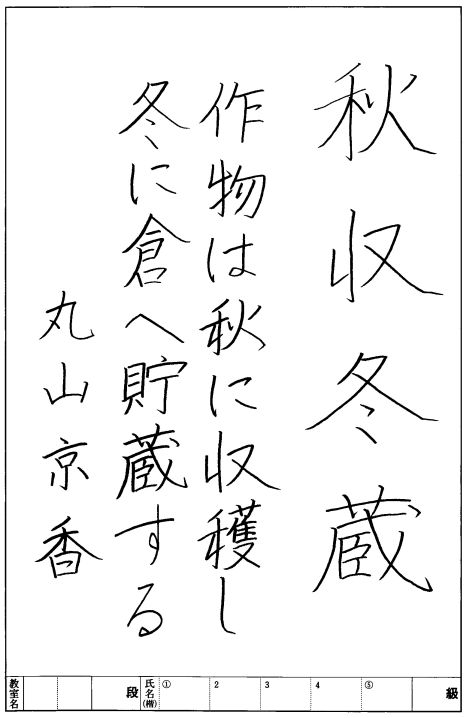 秋収冬蔵
作物は秋に収穫し
冬に倉へ貯蔵する
丸山京香
級
⑤
4
3
2
①
氏名(楷)
段
教室名